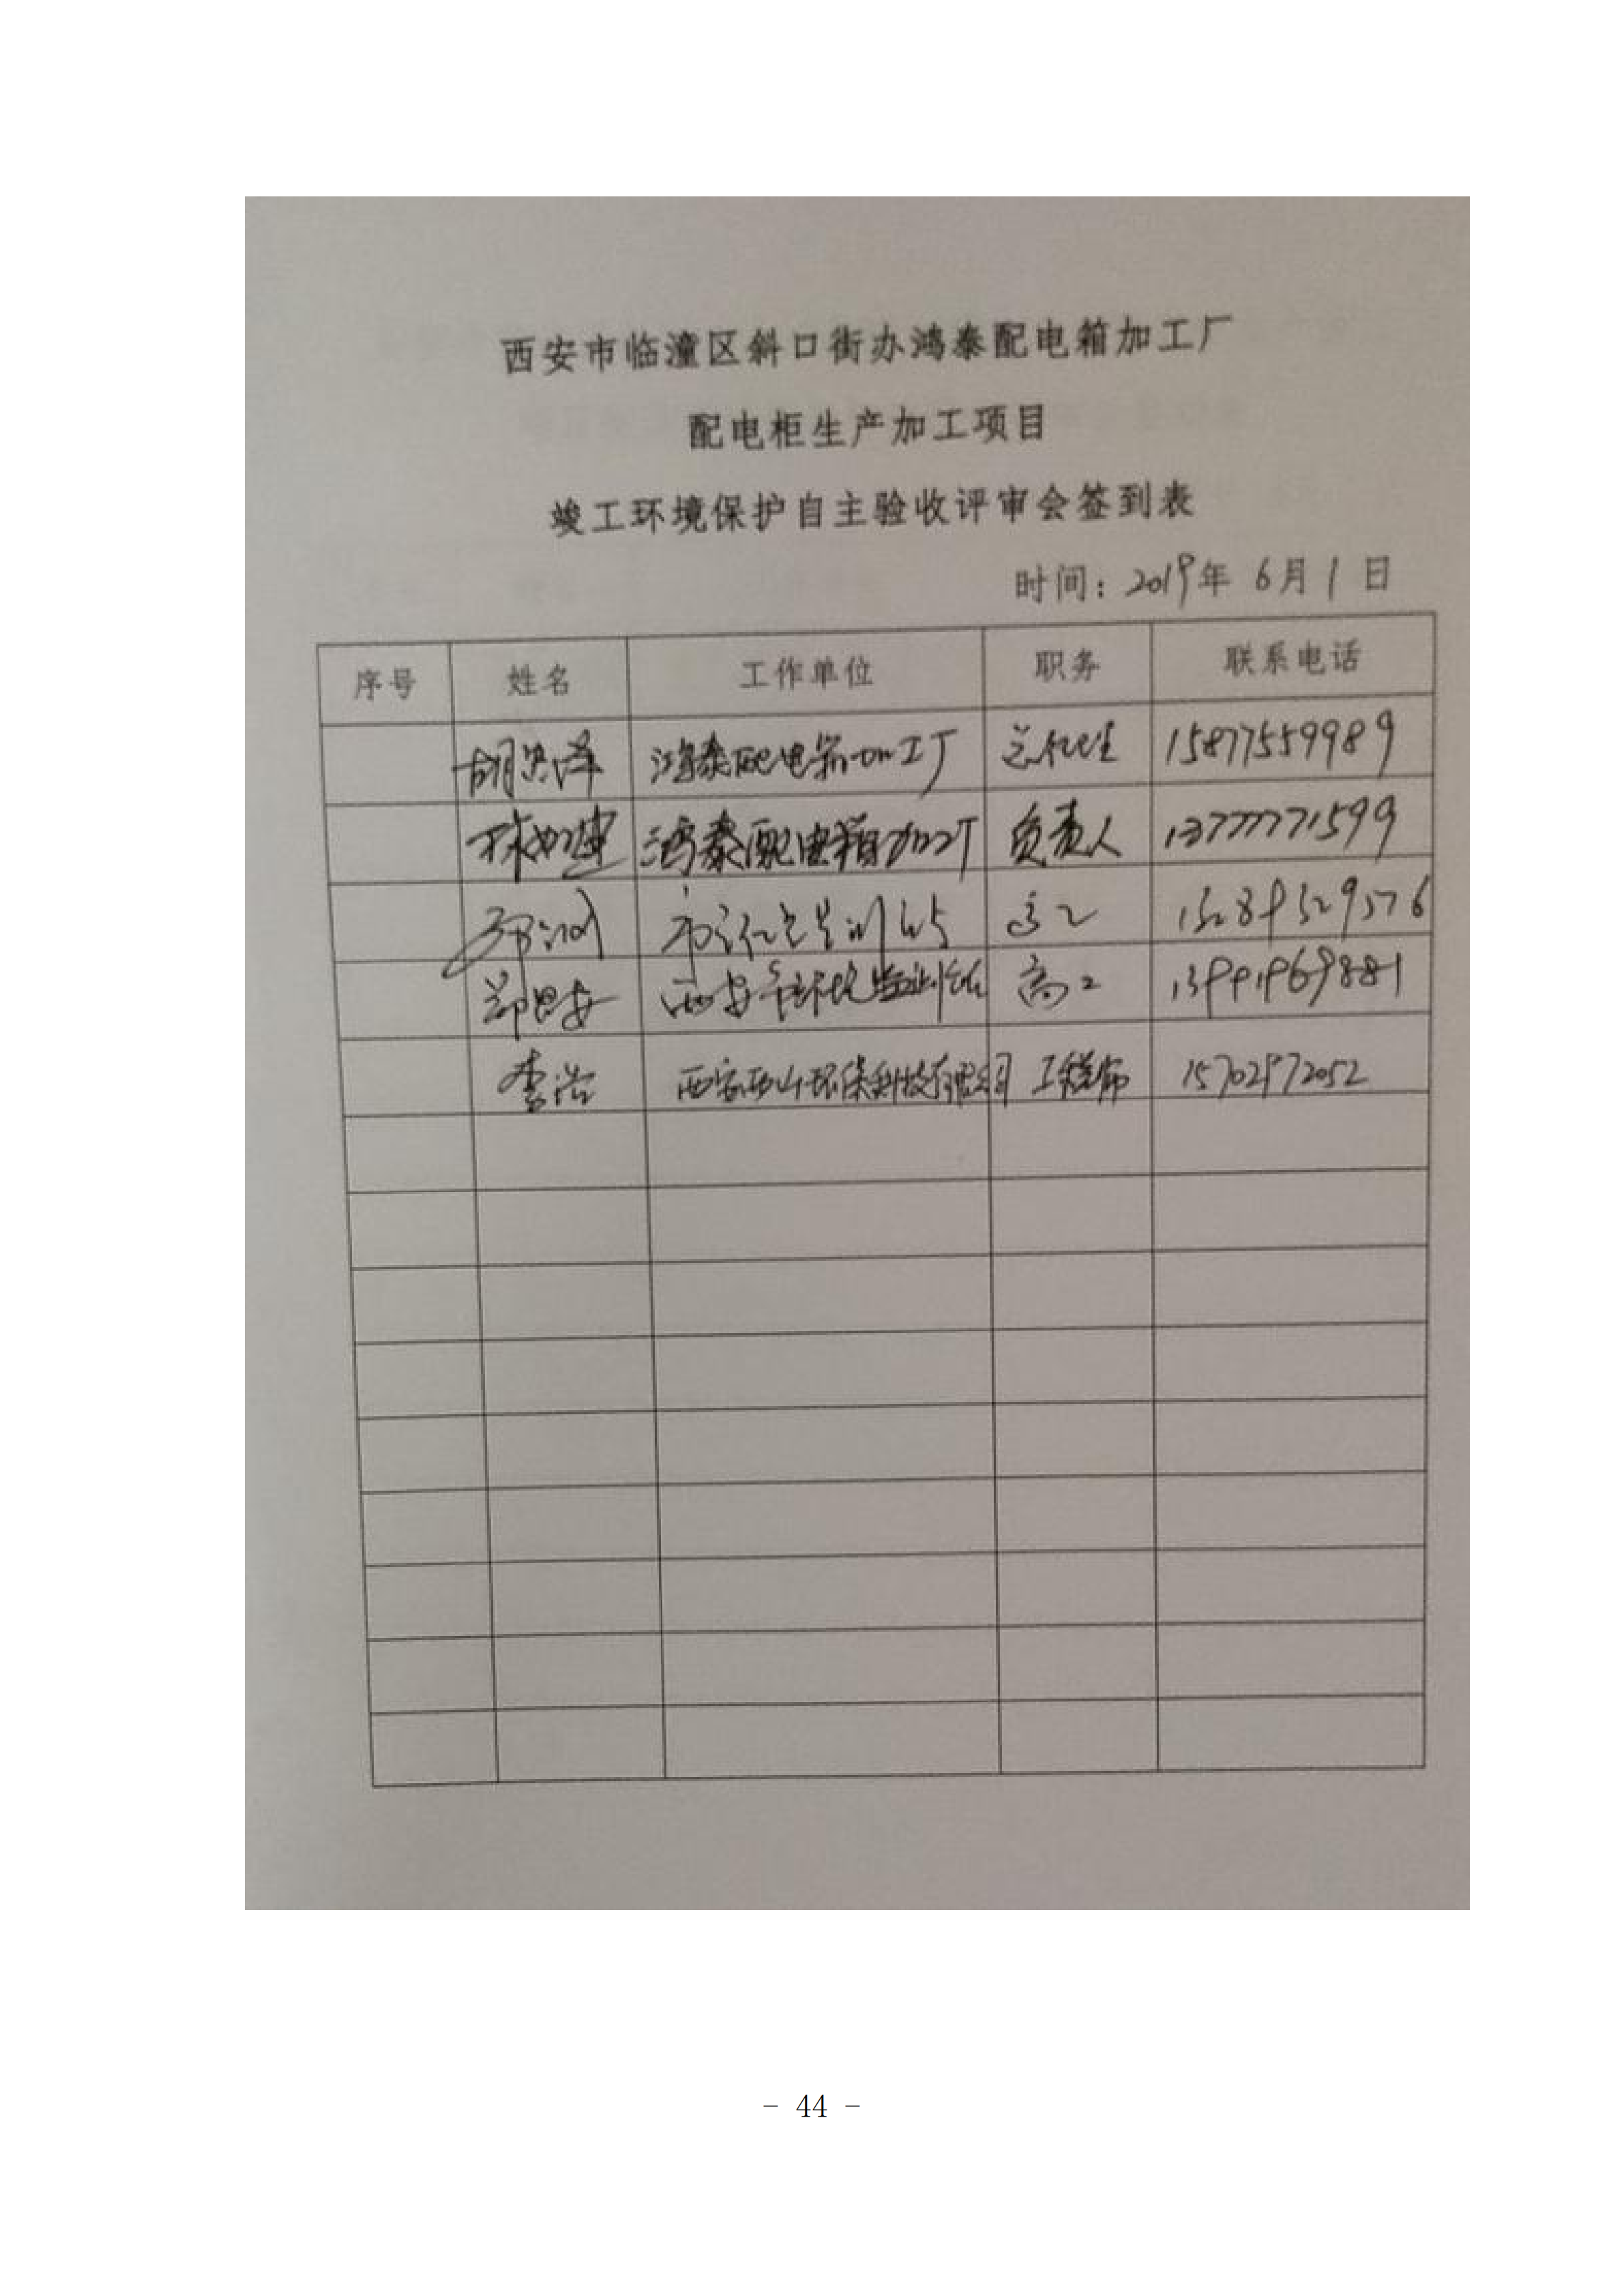 西安市临潼区斜口街办鸿泰配电箱加工厂
配电柜生产加工项目
竣工环境保护自主验收评审会签到表
时间：2019年 6月1日
序号 姓名 工作单位 职务 联系电话
胡 泽 鸿泰配电箱加工厂 总经理 15877559989
鸿泰配电箱加工厂 负责人 13777771599
高工
郑 安 西安市环境监测站 高工 13991969881
李浩 西安西山环保科技有限公司 工程师 15702972052
- 44 -